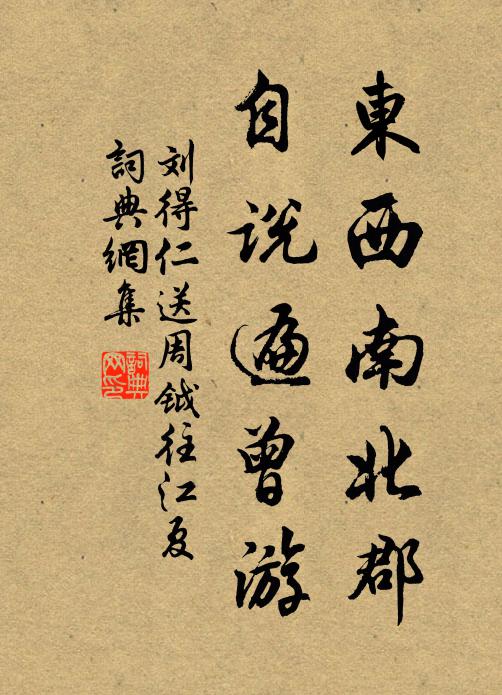 東西南北郡
自说遍曾游
刘得仁送周钺往江夏
詞典網集
詞典网印